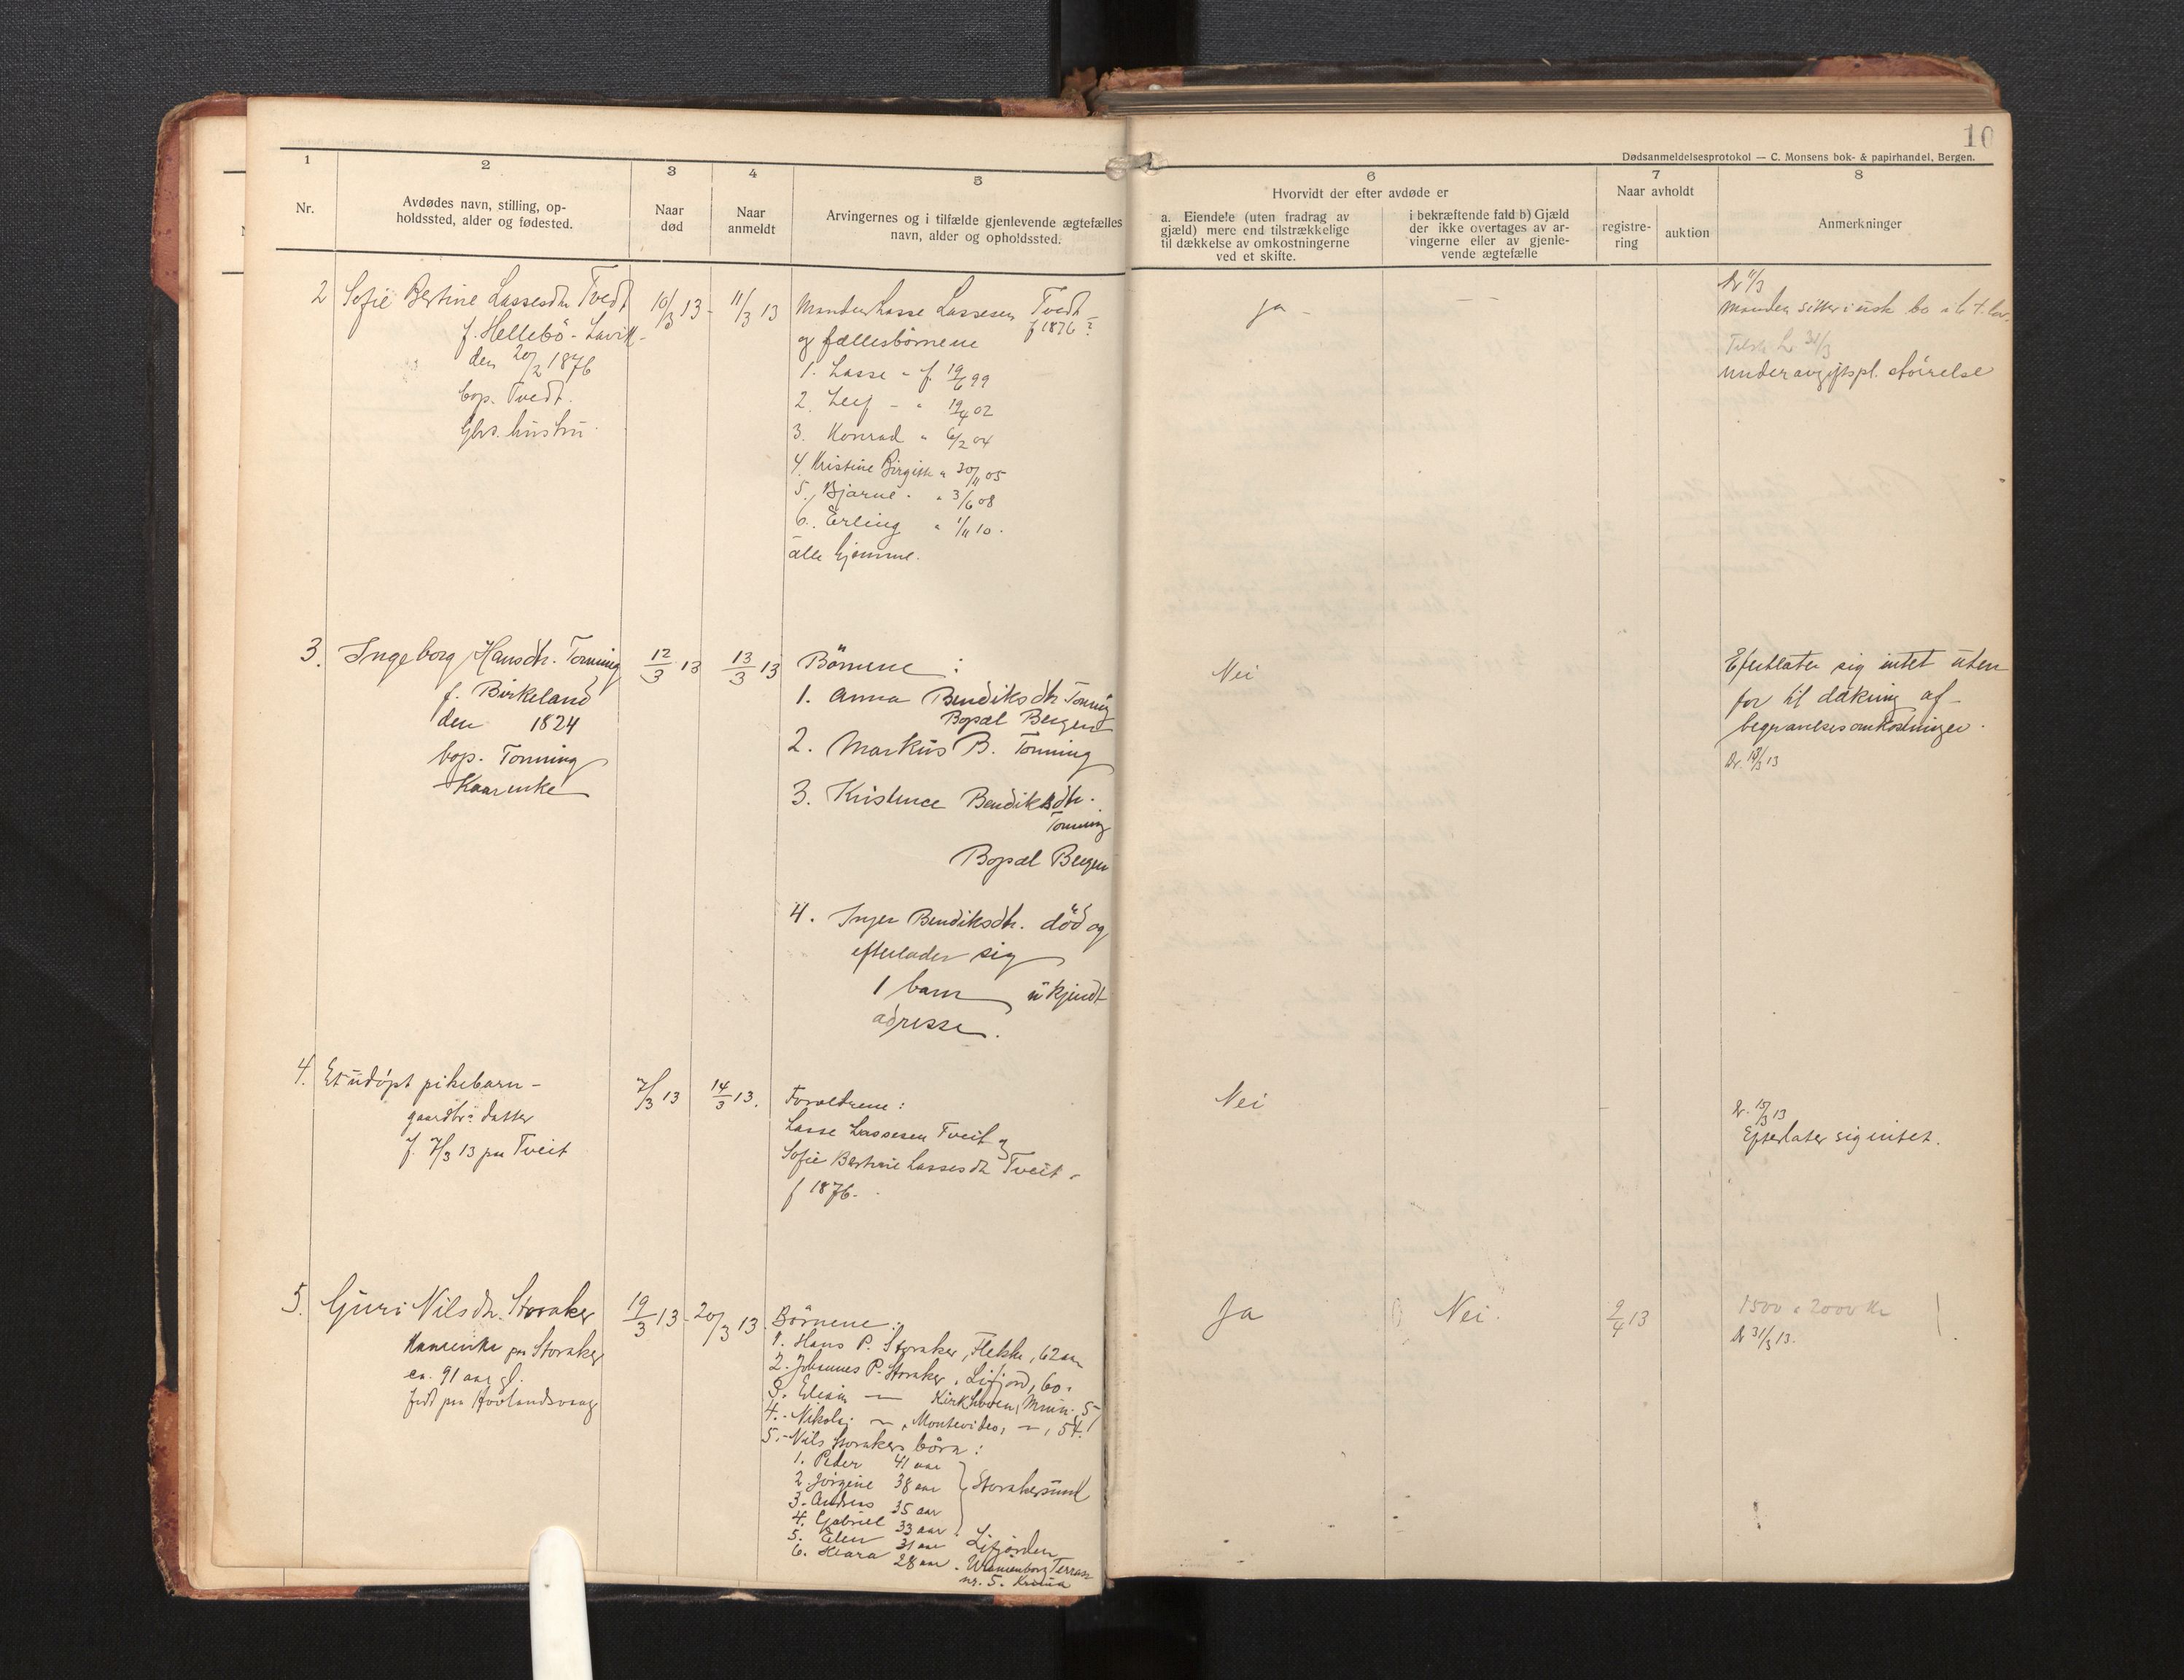 10
Dødsanmeldelsesprotokol — C. Monsens bok- & papirhandel, Bergen.
1
2
3
4
5
6
7
8
Nr.
Avdødes navn, stilling, op-
holdssted, alder og fødested.
Naar
død
Naar
anmeldt
Arvingernes og i tilfælde gjenlevende ægtefælles
navn, alder og opholdssted.
Hvorvidt der efter avdøde er
a. Eiendele (uten fradrag av
gjæld) mere end tilstrækkelige
til dækkelse av omkostningerne
ved et skifte.
i bekræftende fald b) Gjæld
der ikke overtages av ar-
vingerne eller av gjenle-
vende ægtefælle
Naar avholdt
registre-
ring
auktion
Anmerkninger
2 Sofie Bertine Lassesdtr Tvedt
f. Hellebö - Lavik -
den 20/2 1876
bop. Tvedt.
Gbr. hustru.
10/3 13 -
11/3 13
Manden Lasse Lassesen Tvedt -
f 1876?
og fællesbörnene
1. Lasse - f. 19/6 99
2. Leif - " 19/4 02
3. Konrad " 6/2 04
4. Kristine Birgitte " 30/11 05
5. Bjarne. " 3/6 08
6. Erling " 1/11 10.
alle hjemme.
ja -
— —
11/3
Manden sitter i usk bo
31/3
under avgiftspl. störrelse
3. Ingeborg Hansdtr. Tonning
f. Birkeland
den 1824
bop. Tonning
Kaarenke
12/3 13
13/3 13
Börnene :
1. Anna Bendiksdtr Tonning
Bopæl Bergen
2. Markus B. Tonning
3. Kristence Bendiksdtr.
Tonning
Bopæl Bergen
4. Inger Bendiksdtr. död og
efterlader sig
1 barn ukjendt
adresse.
Nei
Efterlater sig intet uten
for til dækning af
begravelsesomkostninger.
13/3 13
4. Et udöpt pikebarn -
gaardbr: datter
f. 7/3 13 paa Tveit
7/3 13
14/3 13.
Forældrene :
Lasse Lassesen Tveit og
Sofie Bertine Lassesdtr Tveit -
f 1876.
Nei
15/3 13
Efterlater sig intet.
5. Guri Nilsdtr. Storaker
Kaarenke paa Storaker
ca. 91 aar gl.
född paa Hovlandsvaag
19/3 13 -
20/3 13.
Börnene :
1. Hans P. Storaker, Flekke, 62 aar
2. Johannes P. Storaker, Lifjord, 60.
3. — Kirkhoven, Minn.
4. Nikolai —, Montevideo, —, 54.
5. Nils Storakers börn :
1. Peder 41 aar
2. Jörgine 38 aar
3. Andreas 35 aar
Storakersund
4. Gabriel 33 aar
5. Elen 31 aar Lifjorden
6. Klara 28 aar. Uranienborg Terrasse
nr. 5. Kr:nia
Ja
Nei.
9/4 13
1500 a 2000 Kr
31/3 13.